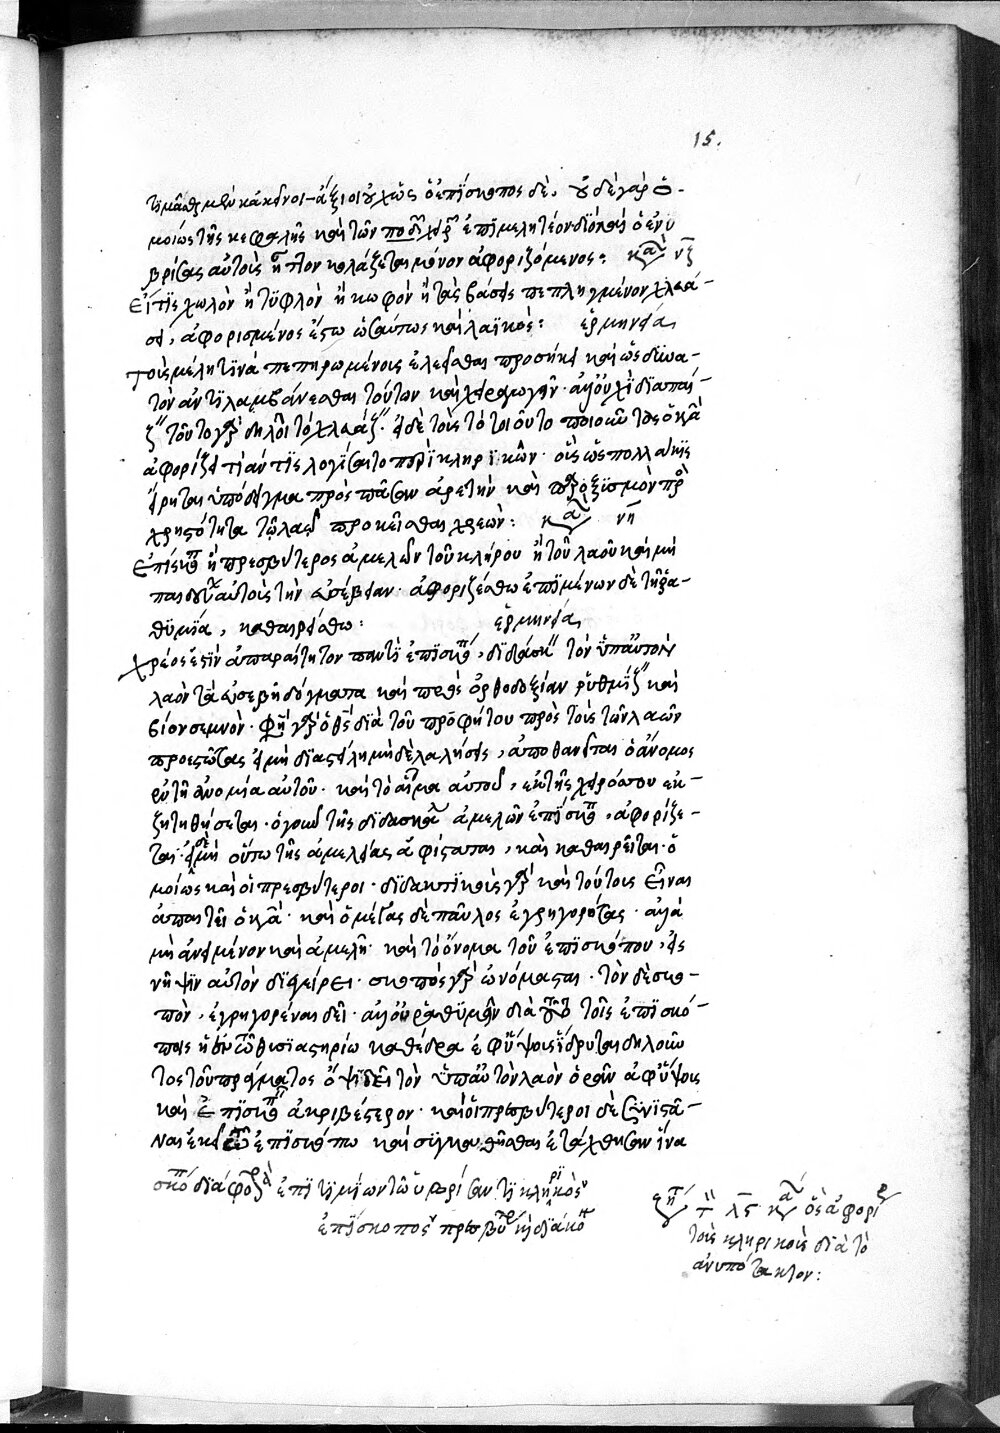 15.
τιμᾶσθαι μὲν κἀκεῖνοι ἄξιοι οὐχ ὡς ὁ ἐπίσκοπος δέ. οὐδὲ γὰρ ὁ-
μοίως τῆς κεφαλῆς καὶ τῶν ποδῶν χειρ ἐπιμελητέον διόπερ ὁ ἐνυ
βρίσας αὐτοὺς ἧττον κολάζεται μόνον ἀφοριζόμενος: καν νζ
Εἴ τις χωλὸν ἢ τυφλὸν ἢ κωφὸν ἢ τὰς βάσεις πεπληγμένον χλευά-
σει, ἀφορισμένος ἔστω ὡσαύτως καὶ λαϊκός: ἑρμηνεία
Τοὺς μέλη τινὰ πεπηρωμένους ἐλεεῖσθαι προσήκει καὶ ὡς δυνα-
τὸν ἀντιλαμβάνεσθαι τούτων καὶ χειραγωγεῖν. ἀλλ' οὐχὶ διαπαί-
ζειν τοῦτο γὰρ δηλοῖ τὸ χλευάζειν. εἰ δέ τις τὸ τοιοῦτο ποιοῦντας ὁ κα
ἀφορίζει τί ἄν τις λογίσαιτο περὶ κληρικῶν. οἷς ὡς πολλάκις
εἴρηται ὑπόδειγμα πρὸς πᾶσαν ἀρετὴν καὶ παροξυσμὸν πρὸς
χρηστότητα τῷ λαῷ προκεῖσθαι χρεών: καν νη
Ἐπίσκοπος ἢ πρεσβύτερος ἀμελῶν τοῦ κλήρου ἢ τοῦ λαοῦ καὶ μὴ
παιδεύων αὐτοὺς τὴν εὐσέβειαν. ἀφοριζέσθω ἐπιμένων δὲ τῇ ῥα-
θυμίᾳ, καθαιρείσθω: ἑρμηνεία
Χρέος ἐστὶν ἀπαραίτητον παντὶ ἐπισκόπῳ, διδάσκειν τὸν ὑπ' αὐτὸν
λαὸν τὰ εὐσεβῆ δόγματα καὶ πρὸς ὀρθοδοξίαν ῥυθμίζειν καὶ
βίον σεμνόν. φησὶ γὰρ ὁ θεὸς διὰ τοῦ προφήτου πρὸς τοὺς τῶν λαῶν
προεστῶτας εἰ μὴ διαστείλῃ μηδὲ λαλήσεις, ἀποθανεῖται ὁ ἄνομος
ἐν τῇ ἀνομίᾳ αὐτοῦ. καὶ τὸ αἷμα αὐτοῦ, ἐκ τῆς χειρός σου ἐκ-
ζητηθήσεται. ὁ γοῦν τῆς διδασκαλίας ἀμελῶν ἐπίσκοπος, ἀφορίζε-
ται. εἰ μὴ οὕτω τῆς ἀμελείας ἀφίσταται, καὶ καθαιρεῖται. ὁ
μοίως καὶ οἱ πρεσβύτεροι. διδακτικοὺς γὰρ καὶ τούτους εἶναι
ἀπαιτεῖ ὁ κα. καὶ ὁ μέγας δὲ παῦλος ἐγρηγορότας. ἀλλὰ
μὴ ἀνειμένον καὶ ἀμελῆ. καὶ τὸ ὄνομα τοῦ ἐπισκόπου, εἰς
νῆψιν αὐτὸν διεγείρει. σκοπὸς γὰρ ὠνόμασται. τὸν δὲ σκο-
πὸν, ἐγρηγορέναι δεῖ. ἀλλ' οὐ ῥαθυμεῖν διὰ τοῦτο τοῖς ἐπισκό-
ποις ἡ ἐν τῷ θυσιαστηρίῳ καθέδρα ἐφ' ὕψους ἵδρυται δηλοῦν
τος τοῦ πράγματος ὅπως δεῖ τὸν ὑπ' αὐτὸν λαὸν ὁρᾶν ἀφ' ὕψους
καὶ ἐπισκοπεῖν ἀκριβέστερον. καὶ οἱ πρεσβύτεροι δὲ συνιστά-
ναι ἐκεῖ τῷ ἐπισκόπῳ καὶ συγκαθῆσθαι ἐτάχθησαν ἵνα
σκο διαφορὰ ἐπιτιμίων τῶν ὑβρισάντων τινὰ κληρικοὺς
ἐπίσκοπος πρεσβύτερος ἢ διάκονος
ζήτει λς κα ὃς ἀφορί
τοὺς κληρικοὺς διὰ τὸ
ἀνυπότακτον: